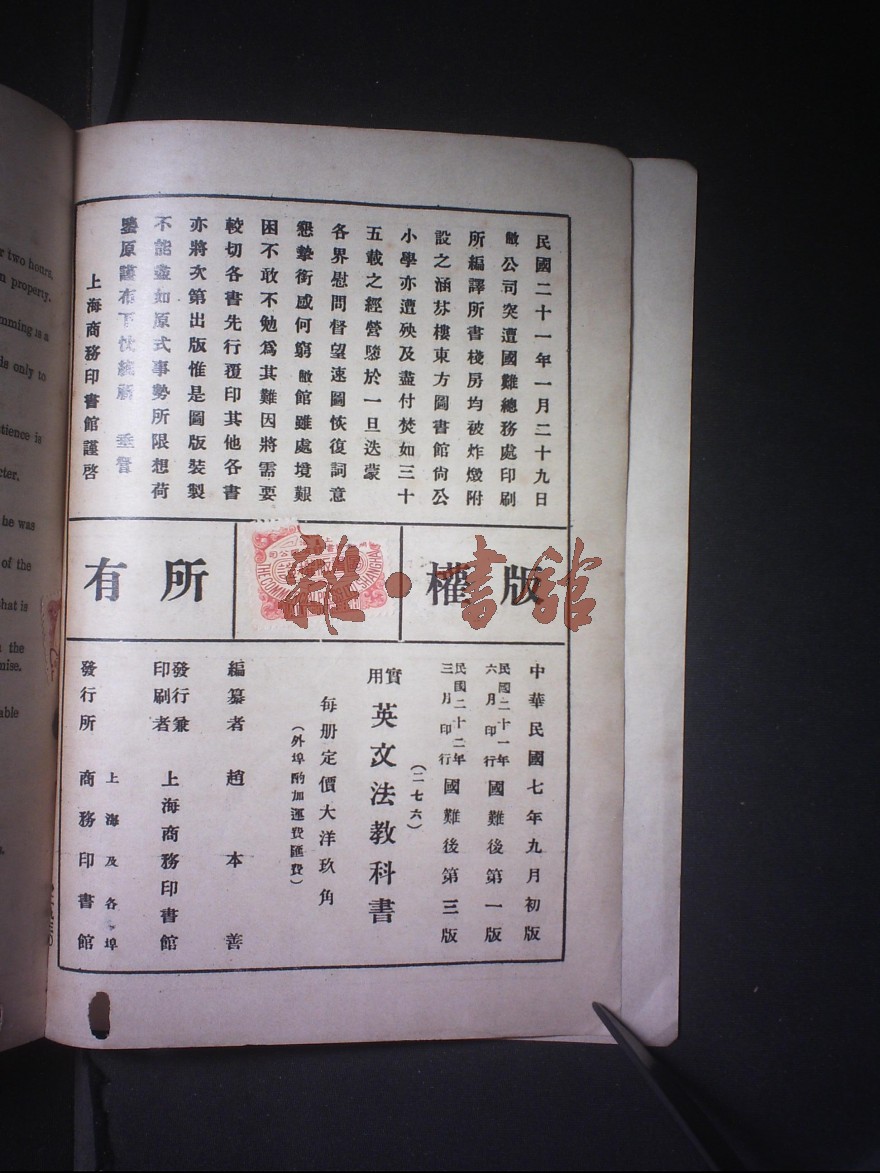 民國二十一年一月二十九日
敝公司突遭國難總務處印刷
所編譯所書棧房均被炸燬附
設之涵芬樓東方圖書館尙公
小學亦遭殃及盡付焚如三十
五載之經營隳於一旦迭蒙
各界慰問督望速圖恢復詞意
懇摯銜感何窮敝館雖處境艱
困不敢不勉爲其難因將需要
較切各書先行覆印其他各書
亦將次第出版惟是圖版裝製
不能盡如原式事勢所限想荷
鑒原謹布下忱統祈 垂詧
上海商務印書館謹啓
版權所有
雜·書館
中華民國七年九月初版
民國二十一年六月印行國難後第一版
民國二十二年三月印行國難後第三版
(二七六)
實用英文法教科書
每册定價大洋玖角
(外埠酌加運費匯費)
編纂者 趙本善
發行兼印刷者 上海商務印書館
發行所 上海及各埠 商務印書館
r two hours,
n property,
mming is a
ls only to
tience is
cter.
he was
of the
hat is
the
mise.
able